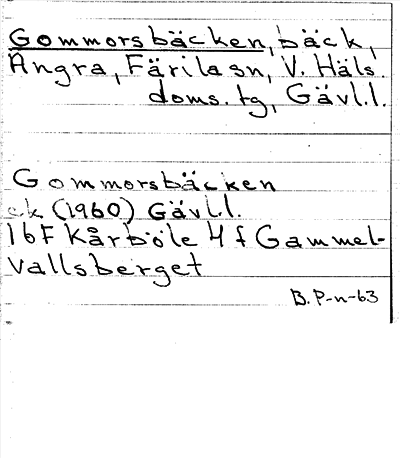 Gommorsbäcken, bäck,
Ängra, Färila sn, V. Häls.
doms. tg, Gävl.l.
Gommorsbäcken
ek (1960) Gävl.l.
16F Kårböle 4 f Gammel-
vallsberget
B. P-n-63